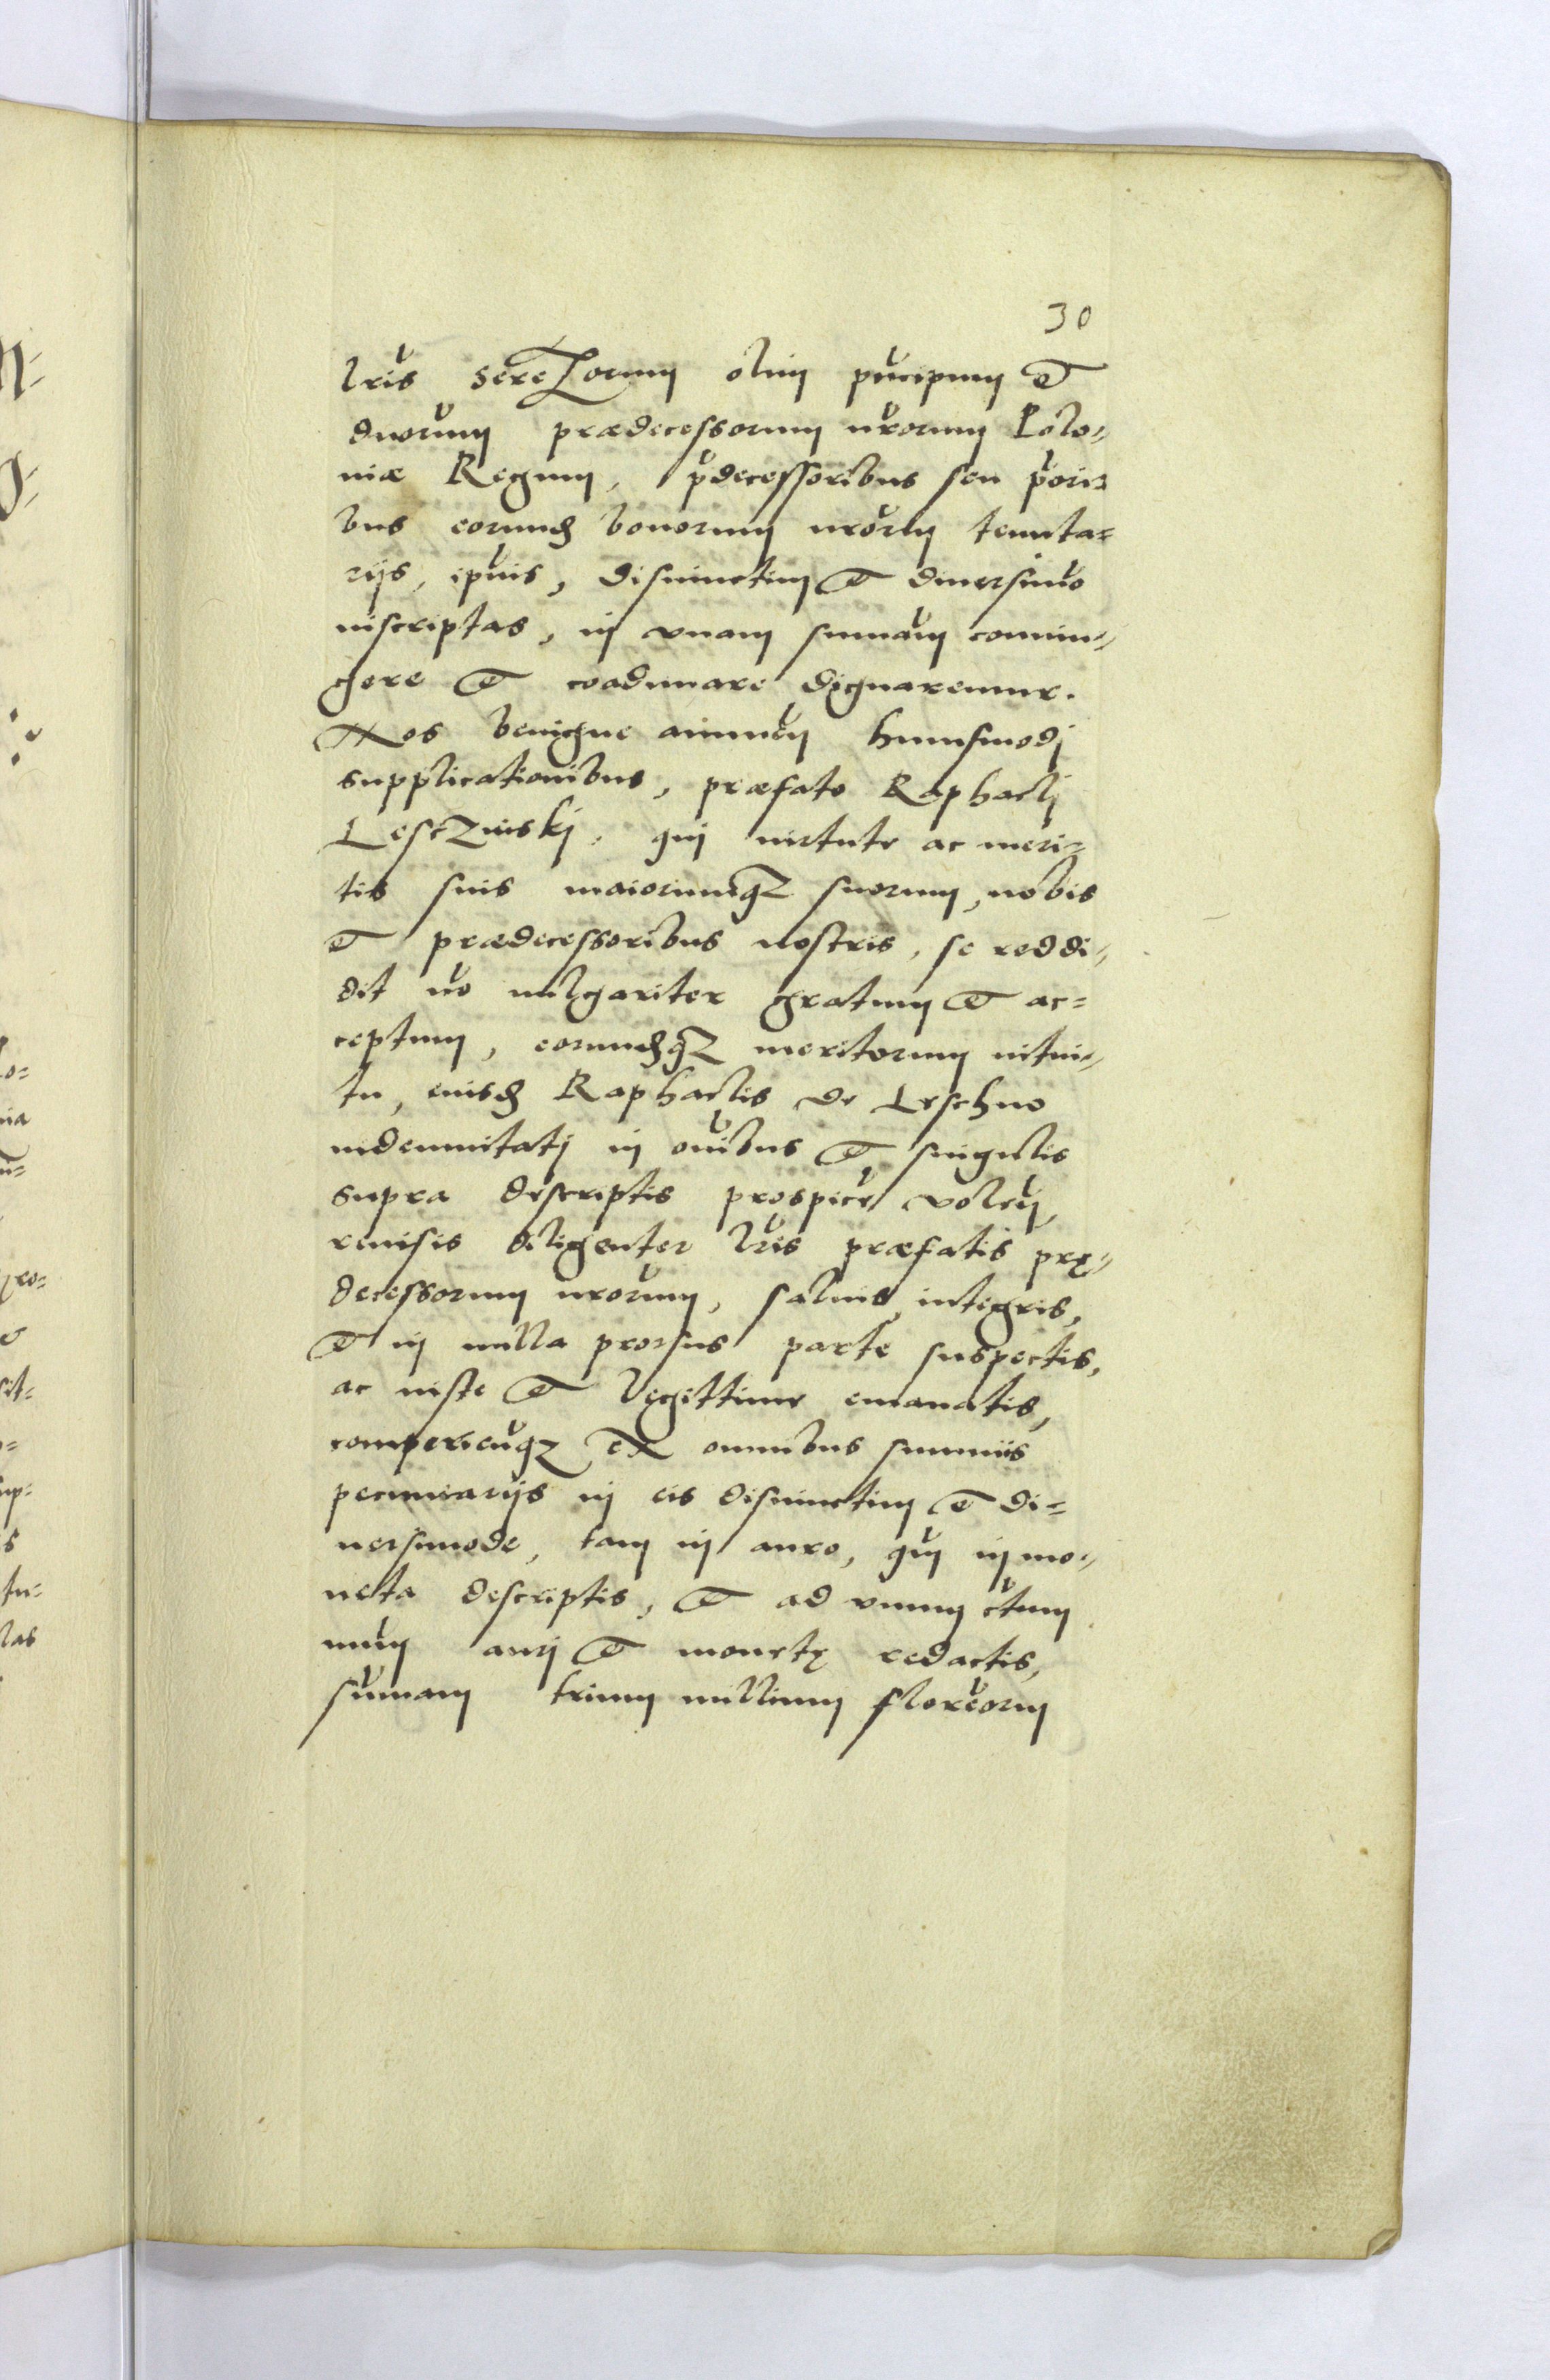 30
lris serelorum olim principum et
dnorum prædecessorum nrorum Polo-
niæ Regum, pdecessoribus seu priori-
bus eorumd bonorum nrorum tenuta-
rijs, ipnis, disiunctim et diuersimo
inscriptas, in vnam summam coniun-
gere et coadunare dignaremur.
Nos benigne annuen huiusmodi
supplicationibus, præfato Raphaeli
Lesczinskj, qui uirtute ac meri-
tis suis maiorumqz suorum, nobis
et prædecessoribus nostris, se reddi-
dit no uulgariter gratum et ac-
ceptum, eorumdqz meritorum intui-
tu, eiusd Raphaelis de Leschno
indemnitatj in omibus et singulis
supra descriptis prospicere volen,
reuisis diligenter lris præfatis prę-
decessorum nrorum, saluis, integris,
et in nulla prorsus parte suspectis,
ac iuste et legittime emanatis,
comperienqz ex omnibus summis
pecuniarijs in eis disiunctim et di-
uersimode, tam in auro, qum in mo-
neta descriptis, et ad vnum ctum
num auri et monetę redactis,
sumam trium millium florenorum